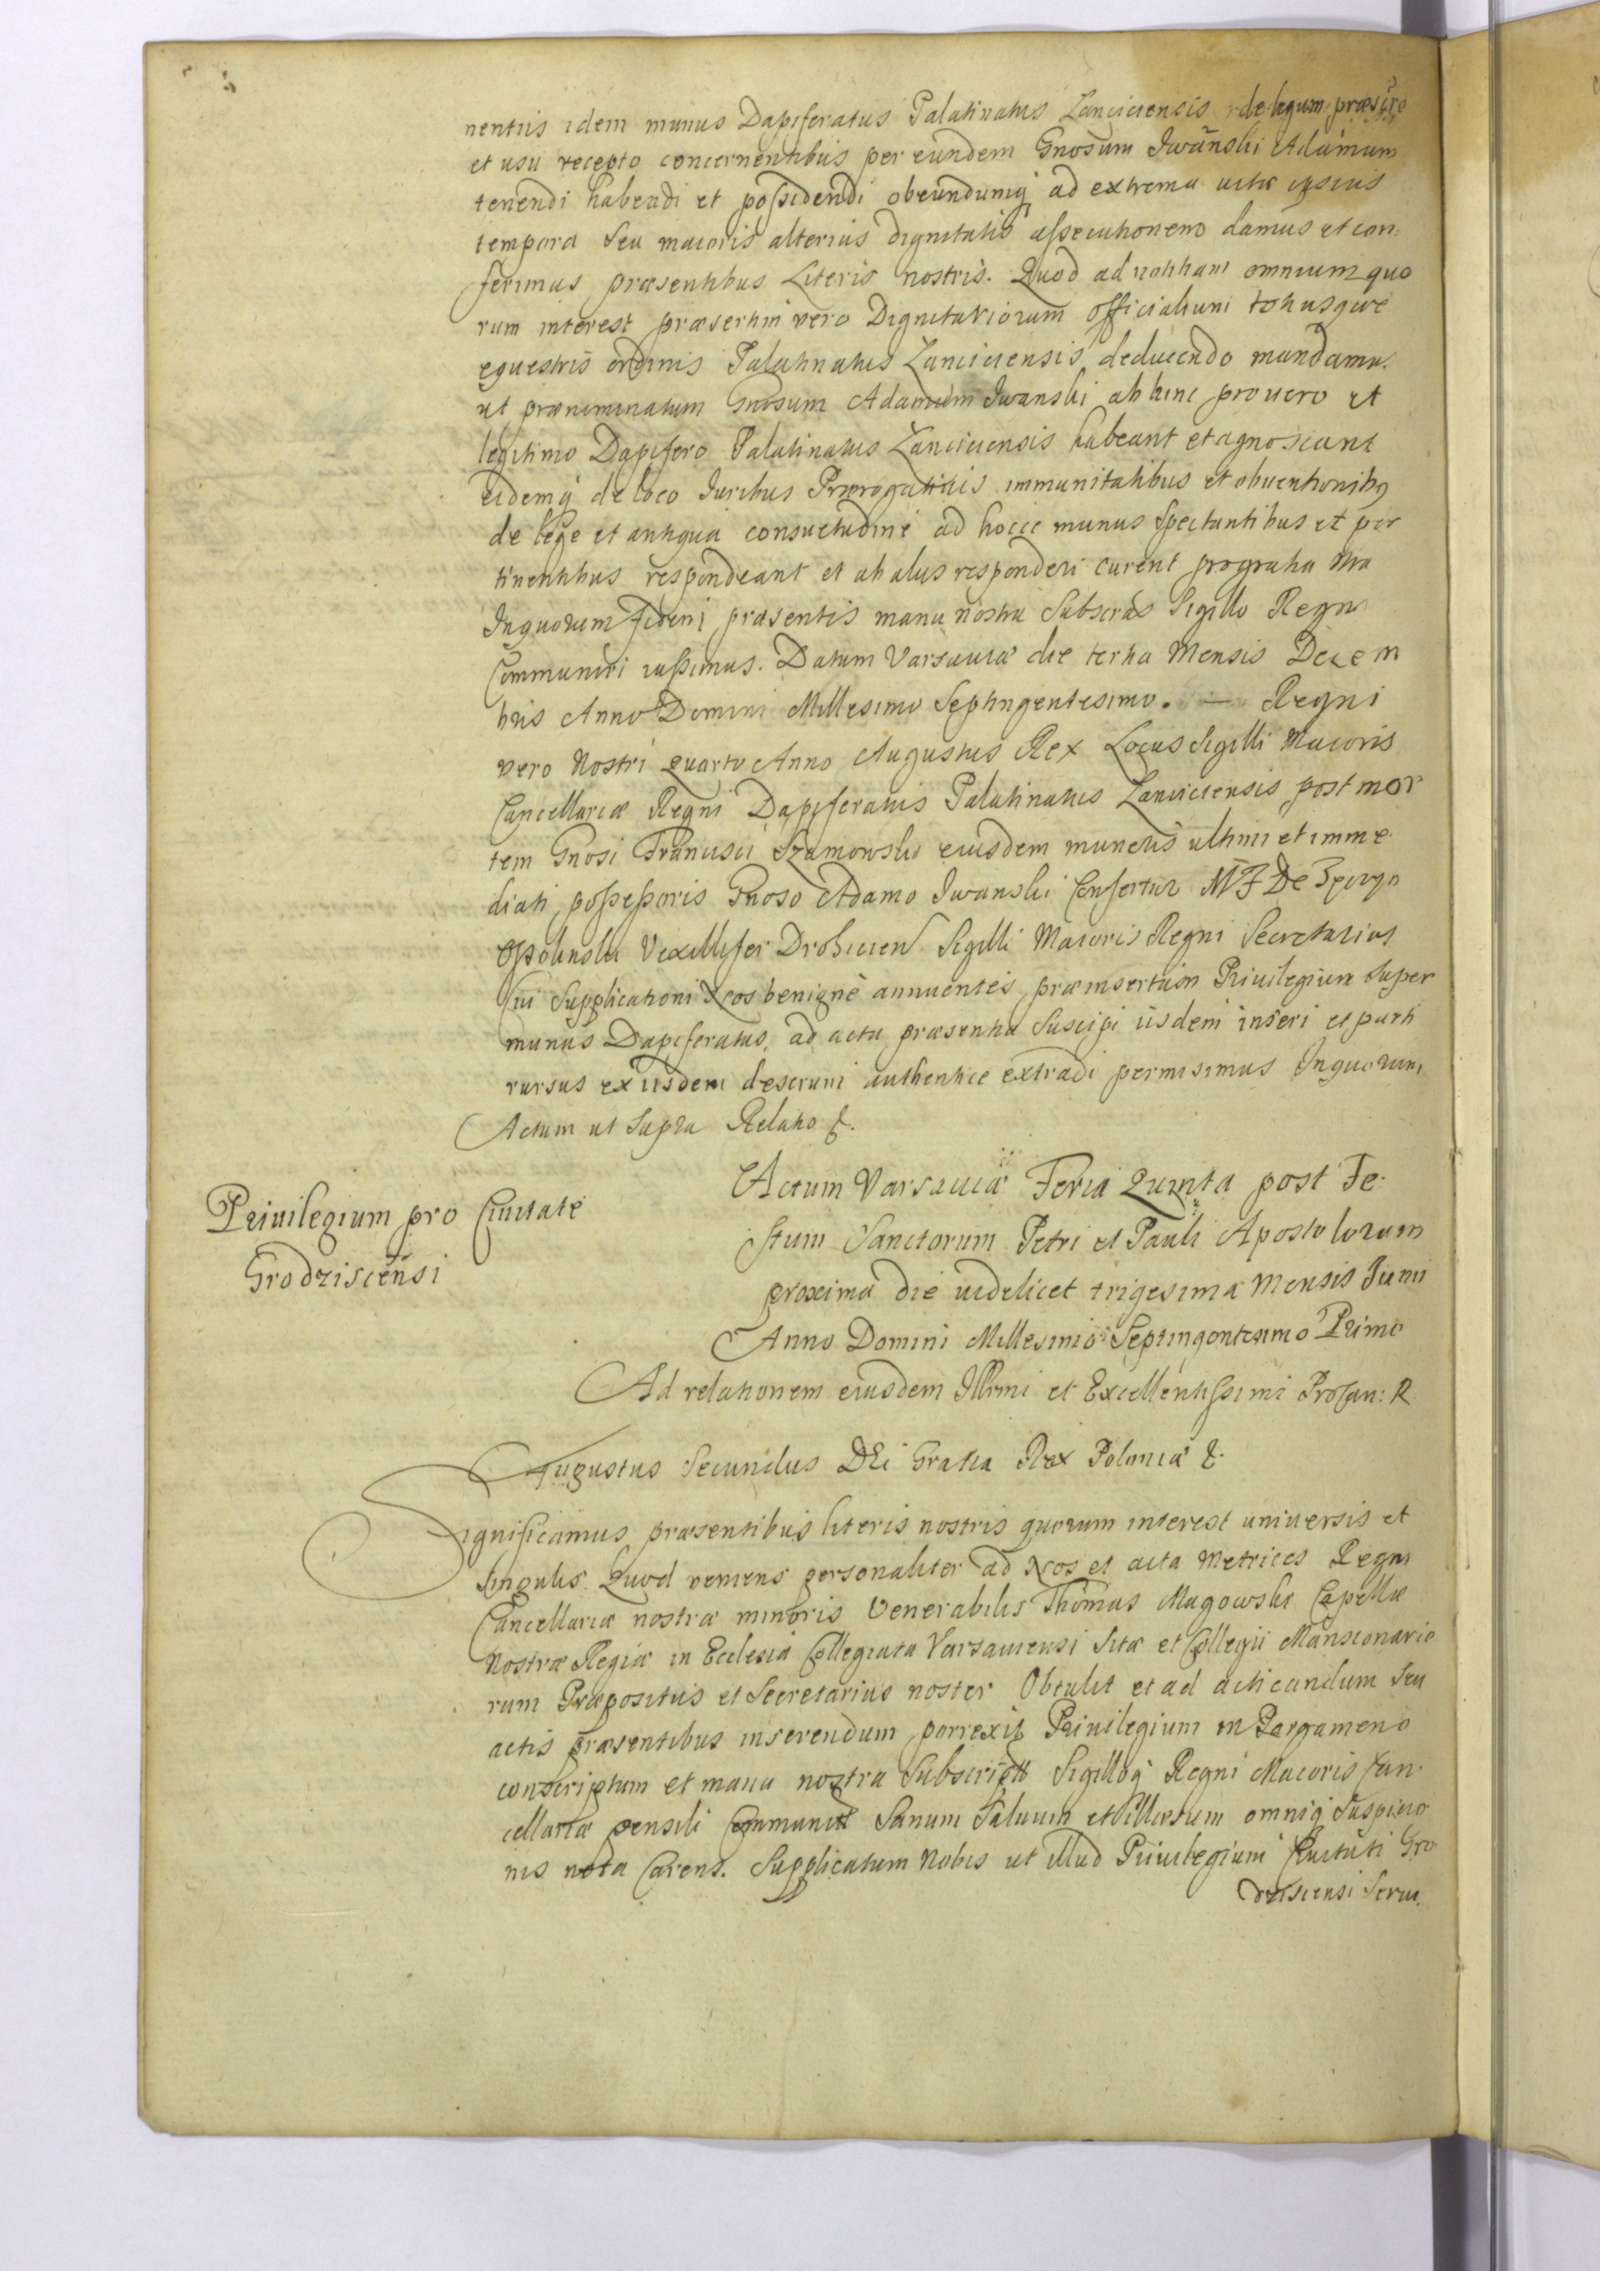 nentiis idem munus Dapiferatus Palatinatus Lanciciensis de legum præscrip
et usu recepto concernentibus per eundem Gnosum Iwanski Adamum
tenendi habendi et possidendi obeundumq ad extrema vitæ ipsius
tempora seu maioris alterius dignitatis assecutionem damus et con
ferimus præsentibus Literis nostris. Quod ad notitiam omnium quo
rum interest præsertim vero Dignitariorum officialium totiusque
equestris ordinis Palatinatus Lanciciensis deducendo mandamus
ut prænominatum Gnosum Adamum Iwanski ab hinc pro vero et
legitimo Dapifero Palatinatus Lanciciensis habeant et agnoscant
eidemq de loco Iuribus Prærogativis immunitatibus et obventionibq
de lege et antiqua consuetudine ad hocce munus spectantibus et per
tinentibus respondeant et ab aliis responderi curent pro gratia nra
In quorum fidem præsentes manu nostra subscras Sigillo Regni
Communiri iussimus. Datum Varsaviæ die tertia Mensis Decem
bris Anno Domini Millesimo Septingentesimo. — Regni
vero Nostri Quarto Anno Augustus Rex Locus Sigilli Maioris
Cancellariæ Regni Dapiferatus Palatinatus Lanciciensis post mor
tem Gnosi Francisci Szamowski eiusdem muneris ultimi et imme
diati possessoris Gnoso Adamo Iwanski Confertur MF De Tęczyn
Ossolinski Vexillifer Drohicien Sigilli Maioris Regni Secretarius
Cui Supplicationi Nos benignè annuentes præinsertum Privilegium super
munus Dapiferatus ad acta præsentia Suscipi iisdem inseri et parti
rursus ex iisdem descrium authentice extradi permisimus In quorum
Actum ut Supra Relatio &.
Privilegium pro Civitate
Grodziscensi
Actum Varsaviæ Feria Quinta post Fe
stum Sanctorum Petri et Pauli Apostolorum
proxima die videlicet trigesima Mensis Junii
Anno Domini Millesimo Septingentesimo Primo
Ad relationem eiusdem Illrmi et Excellentissimi Procan: R
Augustus Secundus DEi Gratia Rex Poloniæ &.
Significamus præsentibus literis nostris quorum interest universis et
singulis. Quod veniens personaliter ad Nos et acta Metrices Regni
Cancellariæ nostræ minoris Venerabilis Thomas Magowski Capellæ
Nostræ Regiæ in Ecclesia Collegiata Varsaviensi Sitæ et Collegii Mansionario
rum Præpositus et Secretarius noster Obtulit et ad acticandum seu
actis præsentibus inserendum porrexit Privilegium in Pargameno
conscriptum et manu nostra Subscript Sigilloq Regni Maioris Can
cellariæ pensili Communit Sanum Salvum et illæsum omniq suspicio
nis nota Carens. Supplicatum Nobis ut illud Privilegium Civitati Gro
dziscensi serui.